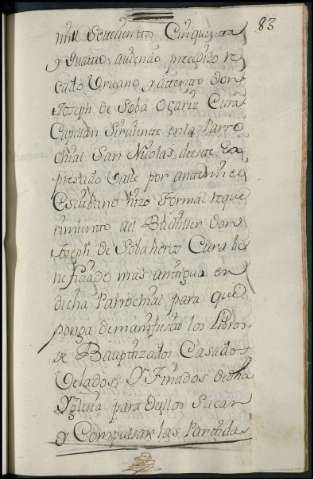 83
mill Setecientos Cinquenta
y quatro, audenão precedido re
cado Urvano, y atento don
Joseph de Soba Ocariz Cura
Capellan Sirviente en la Parro
chial San Nicolas, de este Ex
presado Valle por ante mi el
Escribano hizo formal reque
rimiento al Bachiller don
Joseph de Solahorce Cura be
neficiado mas antiguo en
dicha Parrochial para que
ponga de manifiesto los Libros
de Bauptizados Casados
Velados, y Finados dicha
Yglesia para dellos Sacar
y Compulsar las Partidas